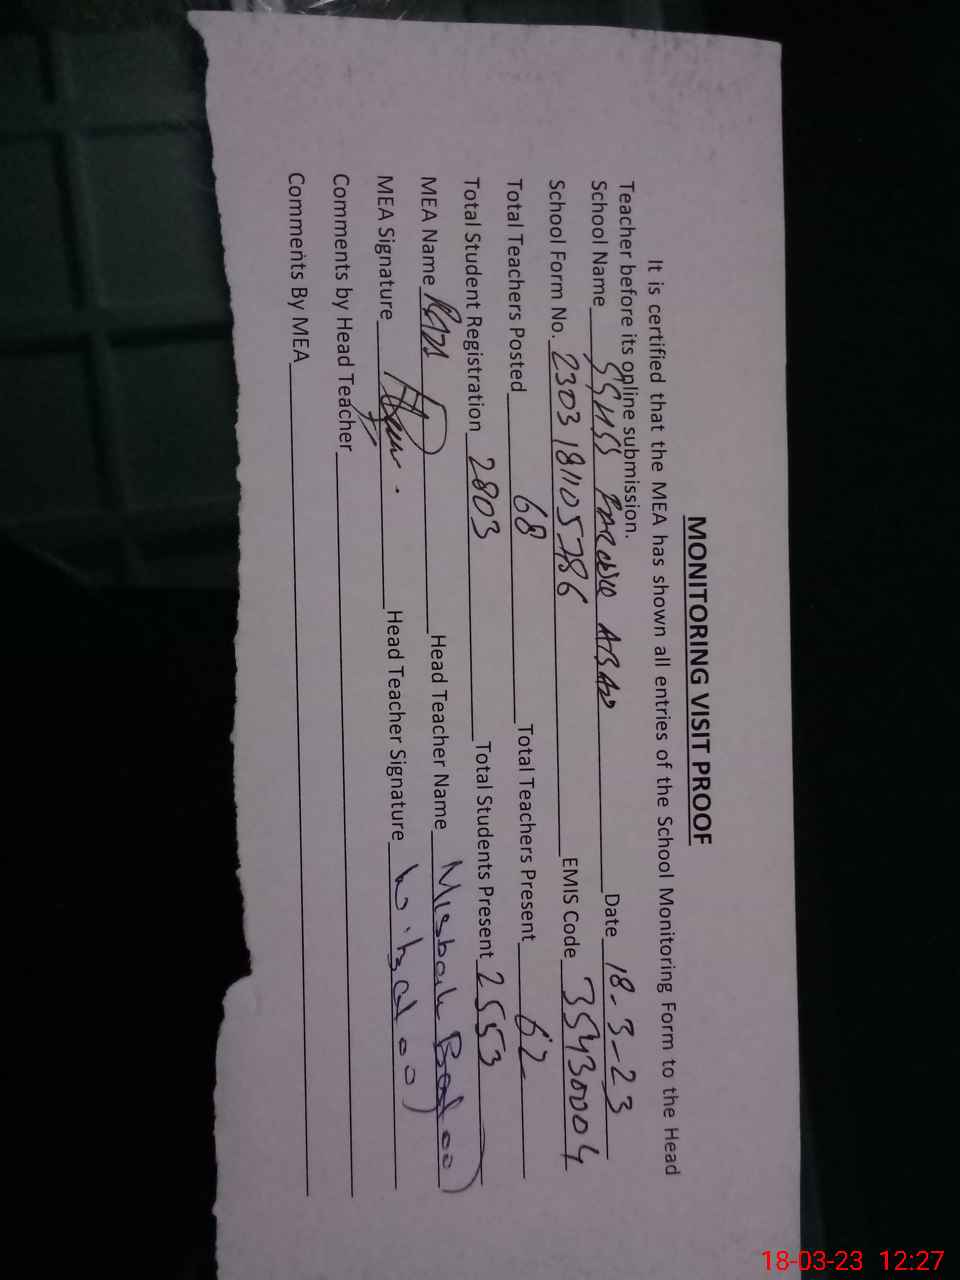 MONITORING VISIT PROOF
It is certified that the MEA has shown all entries of the School Monitoring Form to the Head
Teacher before its online submission.
School Name GGHSS ABAD Date 18-3-23
School Form No. 2303181105786 EMIS Code 35430004
Total Teachers Posted 68 Total Teachers Present 62
Total Student Registration 2803 Total Students Present 2553
MEA Name Head Teacher Name Misbah
MEA Signature Head Teacher Signature
Comments by Head Teacher
Comments By MEA
18-03-23 12:27